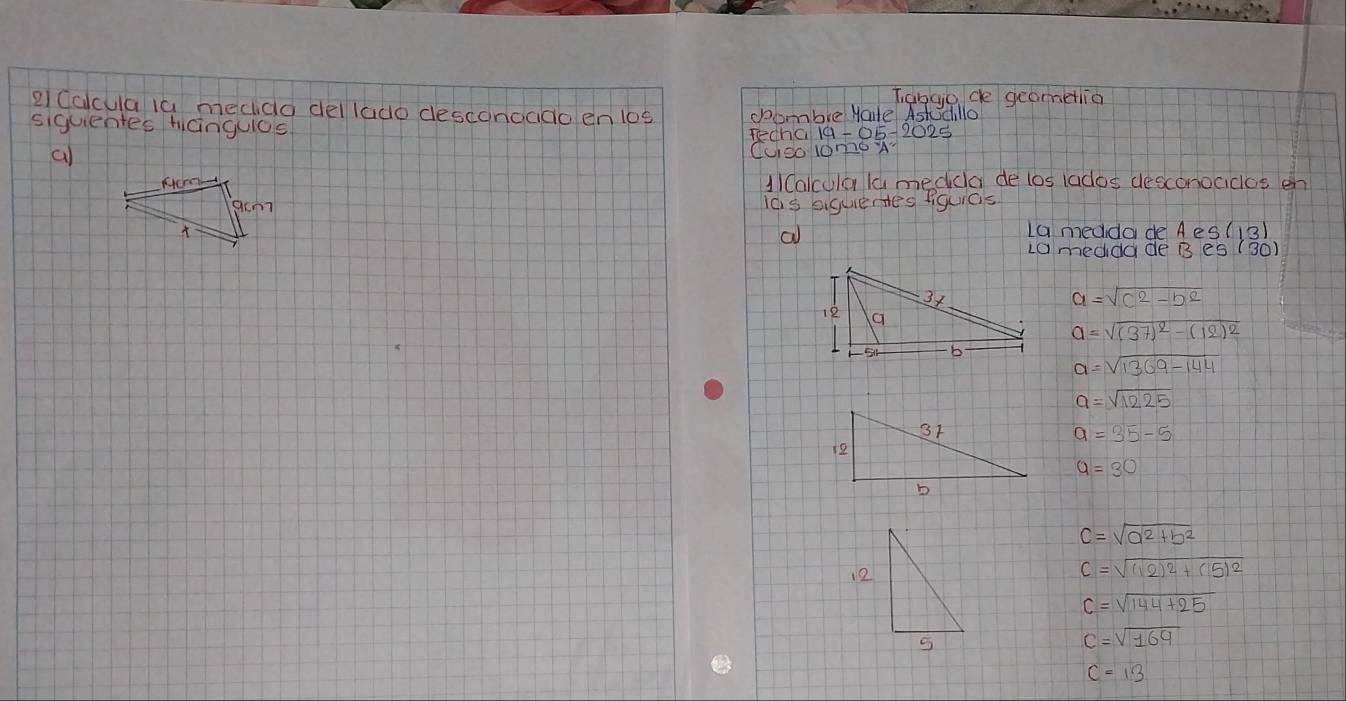 2) Calcula la medida del lado desconocido en los
siguientes triángulos
a)
9cm
x
Trabajo de geometria
Nombre Maite Astudillo
Fecha 19-05-2025
Curso 10mo "A"
1) Calcula la medida de los lados desconocidos en
las siguientes figuras.
a)
La medida de A es (13)
La medida de B es (30)
12
a
37
5
b
a=√c²-b²
a=√(37)²-(12)²
a=√1369-144
a=√1225
a=35-5
a=30
12
37
b
12
5
c=√a²+b²
c=√(12)²+(5)²
c=√144+25
c=√169
c=13